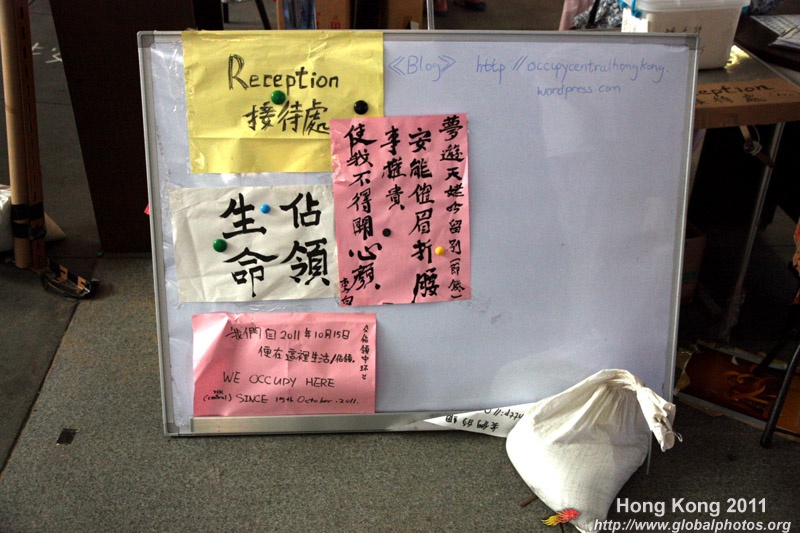 Reception
接待處
《Blog》 http://occupycentralhongkong.
wordpress.com
夢遊天姥吟留別(節錄)
安能催眉折腰
事權貴
使我不得開心顏
李白
佔領
生命
我們自2011年10月15日
便在這裡生活/佔領.
WE OCCUPY HERE
(central) SINCE 15th October.2011.
《佔領中環》
接待處
Hong Kong 2011
http://www.globalphotos.org